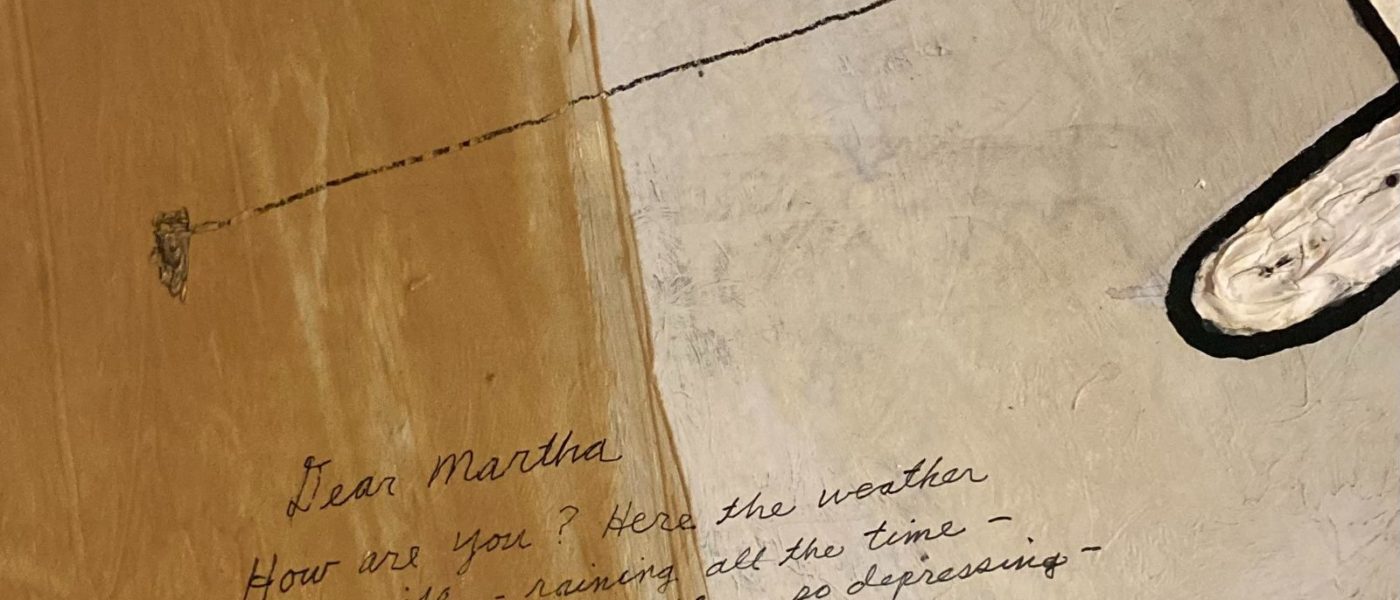 Dear Martha
How are you? Here the weather
- raining all the time -
so depressing -